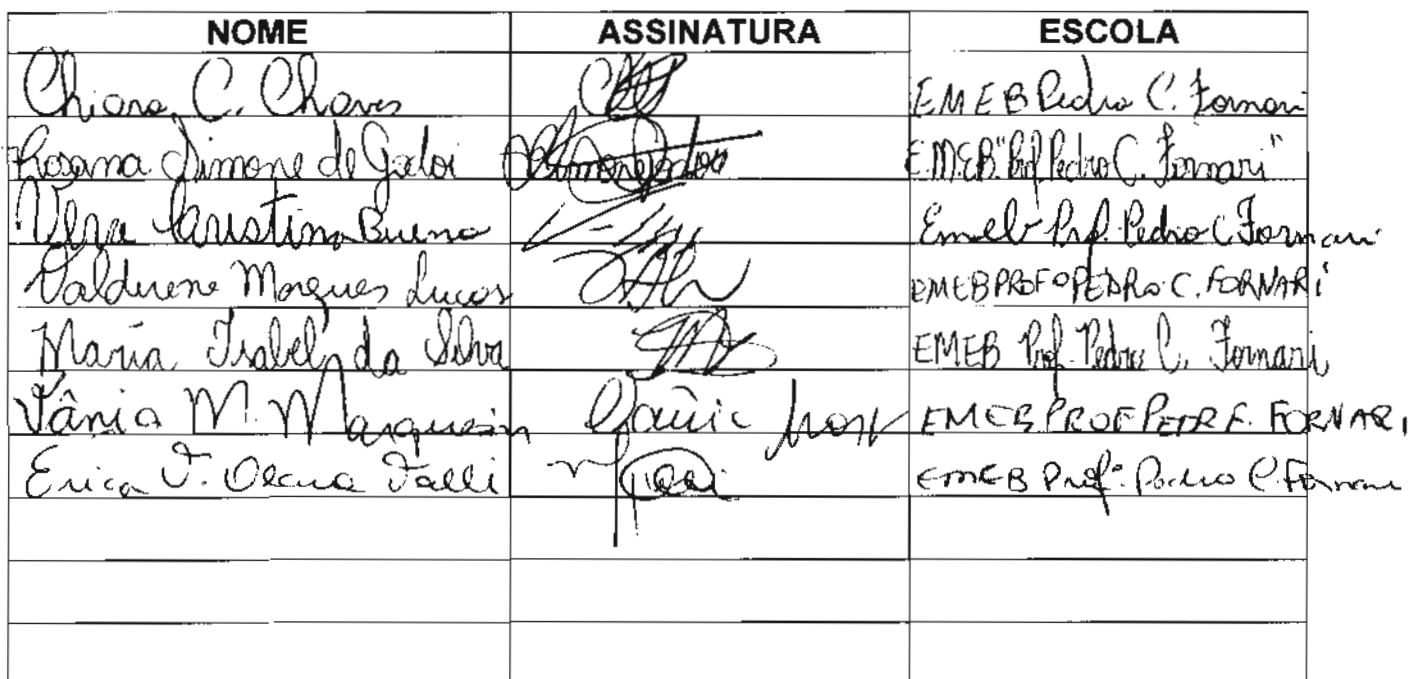 NOME ASSINATURA ESCOLA
Chiara C. Chaves EMEB Pedro C. Fornari
Rosana Simone de Godoi EMEB "Prof Pedro C. Fornari"
Vera Cristina Bueno Emeb Prof. Pedro C Fornari
Valdirene Marques Lucas EMEB PROFº PEDRO C. FORNARI
Maria Isabel da Silva EMEB Prof. Pedro C. Fornari
Tânia M. Marquesin Tânia EMEB PROF PEDR F. FORNARI
Erica T. Falli EMEB Profº Pedro C. Fornari